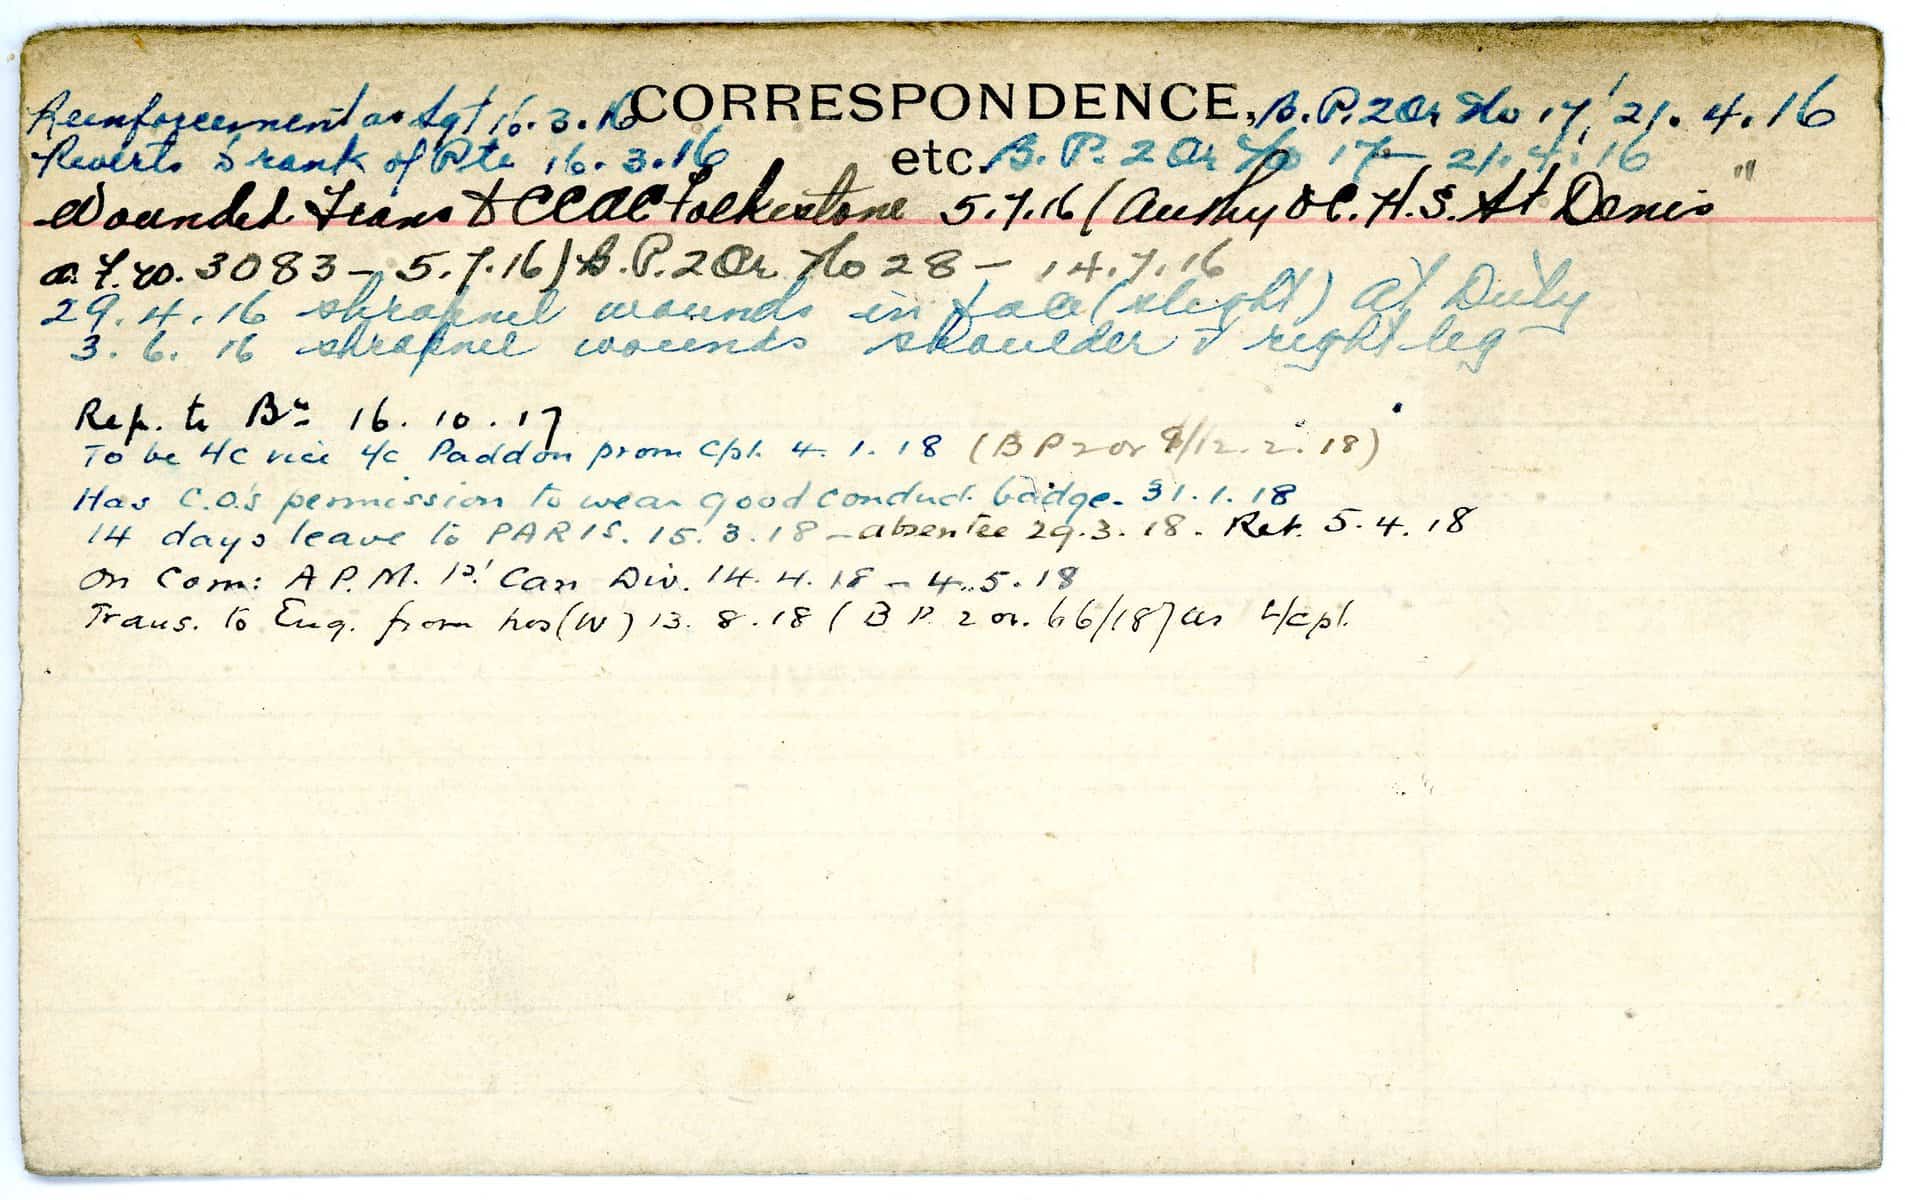 CORRESPONDENCE,
etc.
Reinforcement as Sgt 16.3.16 B.P. 2 Or No 17, 21.4.16
Reverts to rank of Pte 16.3.16 B.P. 2 Or No 17 - 21.4.16
Wounded Trans to CCAC Folkestone 5.7.16 (Authy O C. H.S. St Denis "
A.F.W. 3083 - 5.7.16) B.P. 2 Or No 28 - 14.7.16
29.4.16 shrapnel wounds in face (slight) At Duty
3.6.16 shrapnel wounds shoulder & right leg
Rep. to Bn 16.10.17
To be L/C vice L/C Paddon prom Cpl. 4.1.18 (B P 2 or 9/12.2.18)
Has C.O's permission to wear good conduct badge. 31.1.18
14 days leave to PARIS. 15.3.18 - absentee 29.3.18. Ret. 5.4.18
On Com: A.P.M. 1st Can Div. 14.4.18 - 4.5.18
Trans. to Eng. from hos (W) 13.8.18 (B P. 2 or. 66/18) as L/cpl.